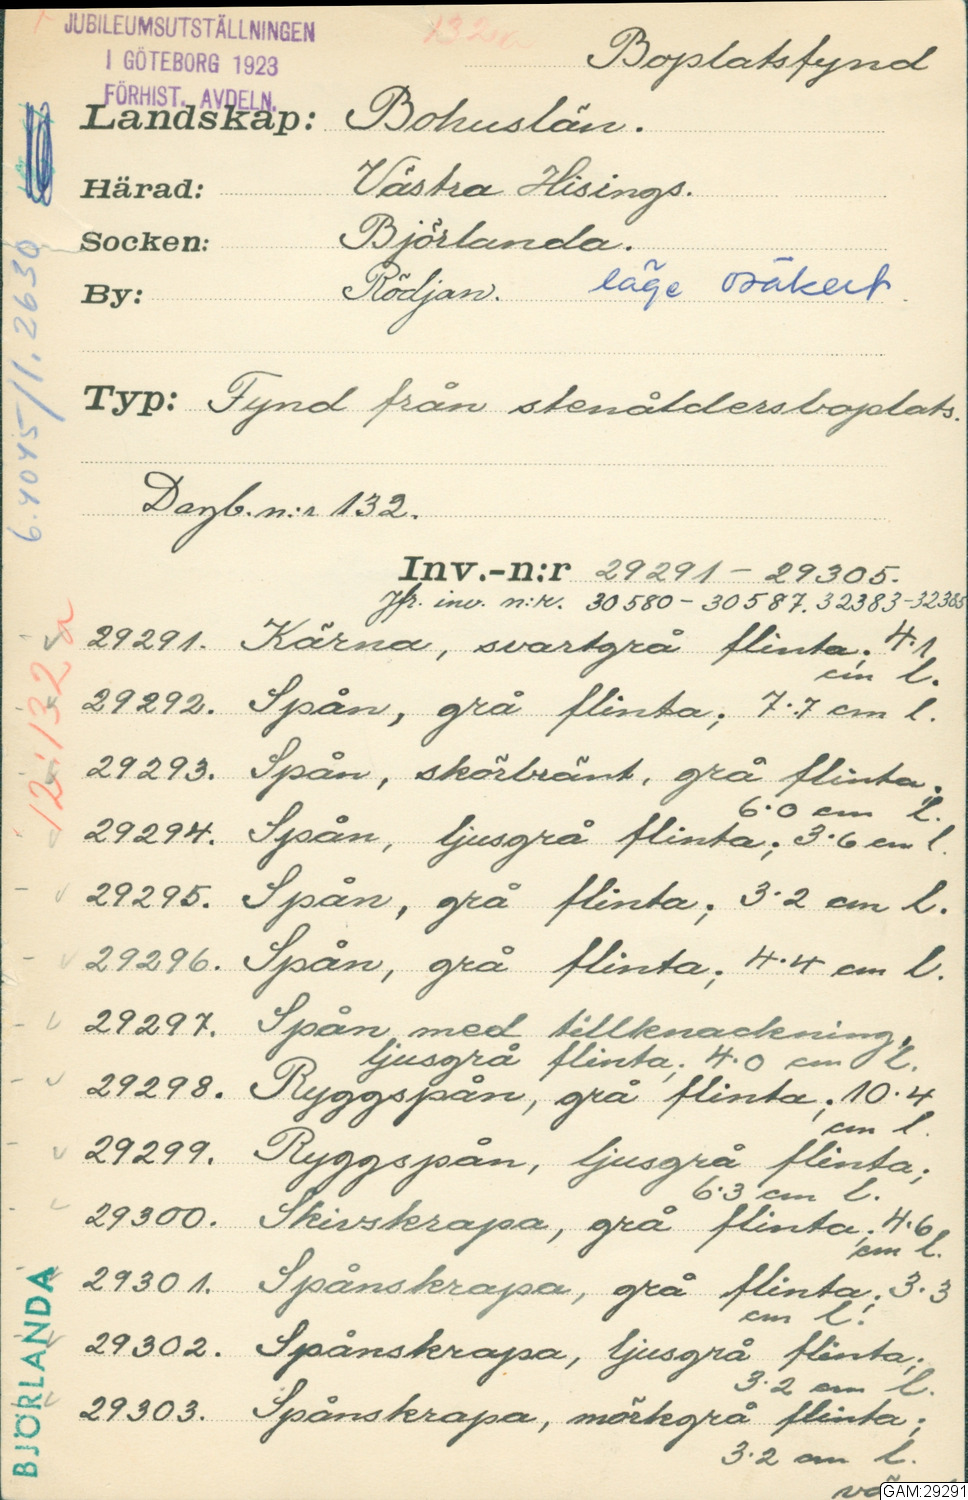 JUBILEUMSUTSTÄLLNINGEN
I GÖTEBORG 1923
FÖRHIST. AVDELN.
132a
Boplatsfynd
Landskap: Bohuslän.
Härad: Västra Hisings.
Socken: Björlanda.
By: Rödjan. läge osäkert
Typ: Fynd från stenåldersboplats.
Dagb. n:r 132.
Inv.-n:r 29291 - 29305.
Jfr. inv. n:r. 30580 - 30587. 32383-32385
29291. Kärna, svartgrå flinta; 4.1
cm l.
29292. Spån, grå flinta; 7.7 cm l.
29293. Spån, skörbränt, grå flinta;
6.0 cm l.
29294. Spån, ljusgrå flinta; 3.6 cm l.
29295. Spån, grå flinta; 3.2 cm l.
29296. Spån, grå flinta; 4.4 cm l.
29297. Spån med tillknackning,
ljusgrå flinta; 4.0 cm l.
29298. Ryggspån, grå flinta; 10.4
cm l.
29299. Ryggspån, ljusgrå flinta;
6.3 cm l.
29300. Skivskrapa, grå flinta; 4.6
cm l.
29301. Spånskrapa, grå flinta; 3.3
cm l.
29302. Spånskrapa, ljusgrå flinta;
3.2 cm l.
29303. Spånskrapa, mörkgrå flinta;
3.2 cm l.
6.4045/1.2630
12:132a
BJÖRLANDA
GAM:29291